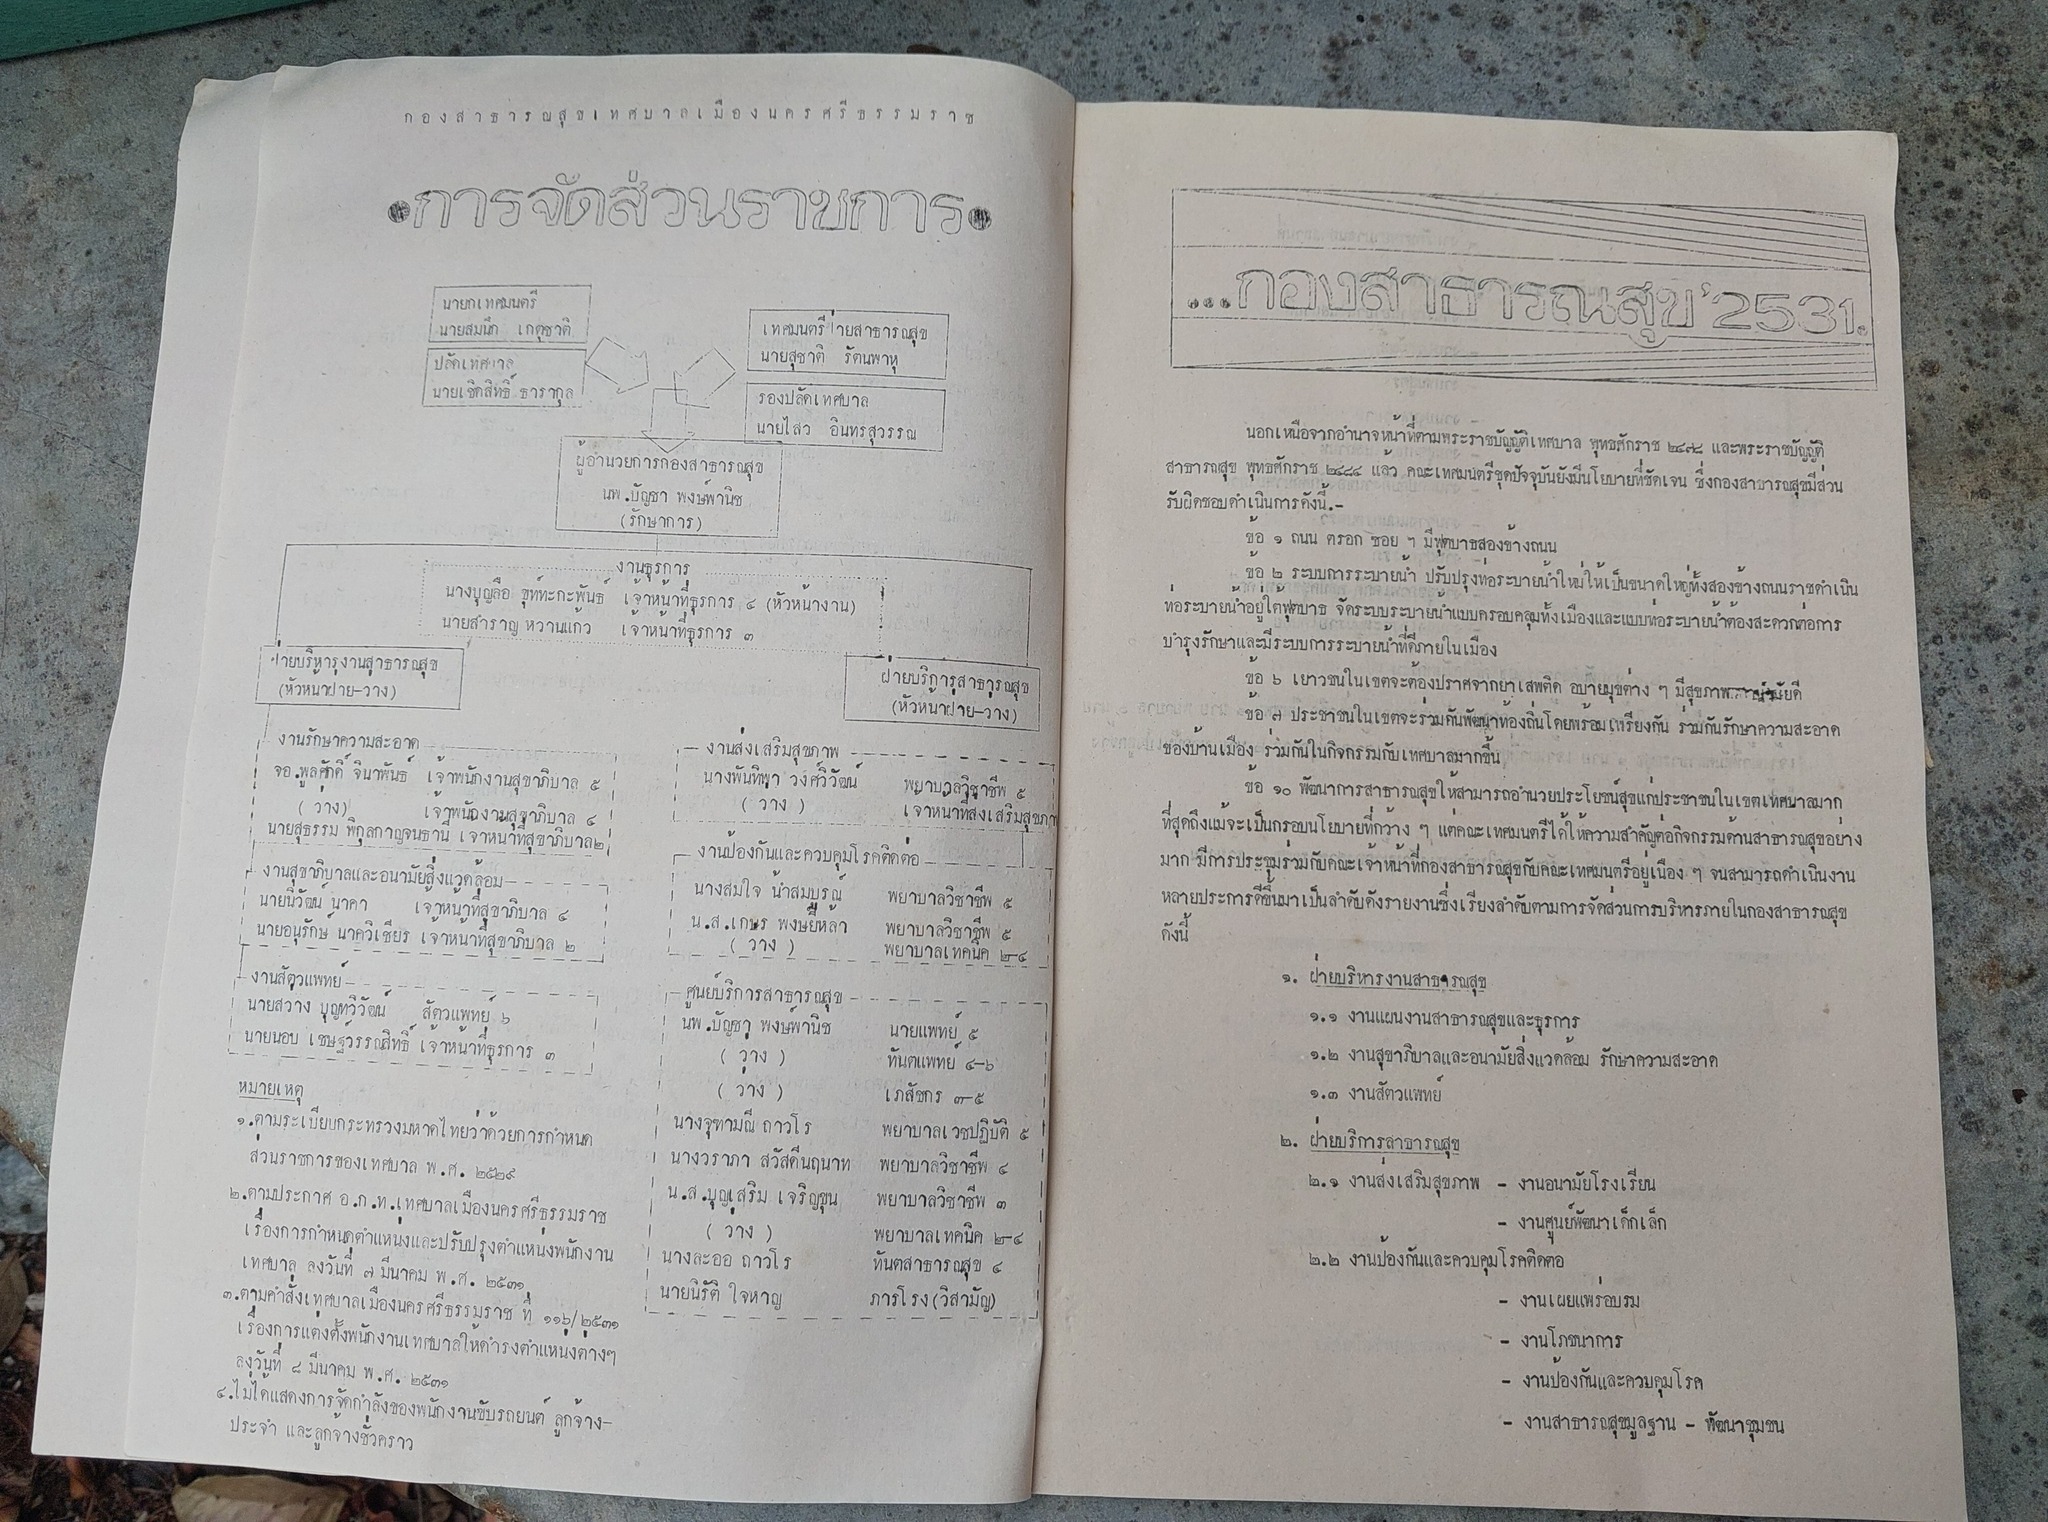 กองสาธารณสุขเทศบาลเมืองนครศรีธรรมราช
การจัดส่วนราชการ
นายกเทศมนตรี
นายสมนึก เกตุชาติ
ปลัดเทศบาล
นายเชิดสิทธิ์ ธารากุล
เทศมนตรีฝ่ายสาธารณสุข
นายสุชาติ รัตนพาหุ
รองปลัดเทศบาล
นายไสว อินทรสุวรรณ
ผู้อำนวยการกองสาธารณสุข
นพ.บัญชา พงษ์พานิช
(รักษาการ)
งานธุรการ
นางบุญลือ ขุท์ทะกะพันธ์ เจ้าหน้าที่ธุรการ ๔ (หัวหน้างาน)
นายสำราญ หวานแก้ว เจ้าหน้าที่ธุรการ ๓
ฝ่ายบริหารงานสาธารณสุข
(หัวหน้าฝ่าย-ว่าง)
งานรักษาความสะอาด
จอ.พูลศักดิ์ จินาพันธ์ เจ้าพนักงานสุขาภิบาล ๕
(ว่าง) เจ้าพนักงานสุขาภิบาล ๔
นายสุธรรม พิกุลกาญจนธานี เจ้าหน้าที่สุขาภิบาล๒
งานสุขาภิบาลและอนามัยสิ่งแวดล้อม
นายนิวัฒน์ นาคา เจ้าหน้าที่สุขาภิบาล ๔
นายอนุรักษ์ นาควิเชียร เจ้าหน้าที่สุขาภิบาล ๒
งานสัตวแพทย์
นายสวาง บุญทวิวัฒน์ สัตวแพทย์ ๖
นายนอบ เชษฐ์วรรณสิทธิ์ เจ้าหน้าที่ธุรการ ๓
หมายเหตุ
๑.ตามระเบียบกระทรวงมหาดไทยว่าด้วยการกำหนด
ส่วนราชการของเทศบาล พ.ศ. ๒๕๒๙
๒.ตามประกาศ อ.ก.ท.เทศบาลเมืองนครศรีธรรมราช
เรื่องการกำหนดตำแหน่งและปรับปรุงตำแหน่งพนักงาน
เทศบาล ลงวันที่ ๗ มีนาคม พ.ศ. ๒๕๓๑
๓.ตามคำสั่งเทศบาลเมืองนครศรีธรรมราช ที่ ๑๑๖/๒๕๓๑
เรื่องการแต่งตั้งพนักงานเทศบาลให้ดำรงตำแหน่งต่างๆ
ลงวันที่ ๘ มีนาคม พ.ศ. ๒๕๓๑
๔.ไม่ได้แสดงการจัดกำลังของพนักงานขับรถยนต์ ลูกจ้าง-
ประจำ และลูกจ้างชั่วคราว
ฝ่ายบริการสาธารณสุข
(หัวหน้าฝ่าย-ว่าง)
งานส่งเสริมสุขภาพ
นางพันทิพา วงศ์วิวัฒน์ พยาบาลวิชาชีพ ๕
(ว่าง) เจ้าหน้าที่ส่งเสริมสุขภา
งานป้องกันและควบคุมโรคติดต่อ
นางสมใจ น้ำสมบูรณ์ พยาบาลวิชาชีพ ๕
น.ส.เกษร พงษ์ยี่หล้า พยาบาลวิชาชีพ ๕
(ว่าง) พยาบาลเทคนิค ๒-๔
ศูนย์บริการสาธารณสุข
นพ.บัญชา พงษ์พานิช นายแพทย์ ๕
(ว่าง) ทันตแพทย์ ๔-๖
(ว่าง) เภสัชกร ๓-๕
นางจุฑามณี ถาวโร พยาบาลเวชปฏิบัติ ๕
นางวราภา สวัสดีนฤนาท พยาบาลวิชาชีพ ๔
น.ส.บุญเสริม เจริญขุน พยาบาลวิชาชีพ ๓
(ว่าง) พยาบาลเทคนิค ๒-๔
นางละออ ถาวโร ทันตสาธารณสุข ๔
นายนิรัติ ใจหาญ ภารโรง(วิสามัญ)
...กองสาธารณสุข'2531.
นอกเหนือจากอำนาจหน้าที่ตามพระราชบัญญัติเทศบาล พุทธศักราช ๒๔๙๖ และพระราชบัญญัติ
สาธารณสุข พุทธศักราช ๒๔๘๔ แล้ว คณะเทศมนตรีชุดปัจจุบันยังมีนโยบายที่ชัดเจน ซึ่งกองสาธารณสุขมีส่วน
รับผิดชอบดำเนินการดังนี้.-
ข้อ ๑ ถนน ตรอก ซอย ๆ มีฟุตบาธสองข้างถนน
ข้อ ๒ ระบบการระบายน้ำ ปรับปรุงท่อระบายน้ำใหม่ให้เป็นขนาดใหญ่ทั้งสองข้างถนนราชดำเนิน
ท่อระบายน้ำอยู่ใต้ฟุตบาธ จัดระบบระบายน้ำแบบครอบคลุมทั้งเมืองและแบบท่อระบายน้ำต้องสะดวกต่อการ
บำรุงรักษาและมีระบบการระบายน้ำที่ดีภายในเมือง
ข้อ ๖ เยาวชนในเขตจะต้องปราศจากยาเสพติด อบายมุขต่าง ๆ มีสุขภาพ
ข้อ ๗ ประชาชนในเขตจะร่วมกันพัฒนาท้องถิ่นโดยพร้อมเพรียงกัน ร่วมกันรักษาความสะอาด
ของบ้านเมือง ร่วมกันในกิจกรรมกับเทศบาลมากขึ้น
ข้อ ๑๐ พัฒนาการสาธารณสุขให้สามารถอำนวยประโยชน์สุขแก่ประชาชนในเขตเทศบาลมาก
ที่สุดถึงแม้จะเป็นกรอบนโยบายที่กว้าง ๆ แต่คณะเทศมนตรีได้ให้ความสำคัญต่อกิจกรรมด้านสาธารณสุขอย่าง
มาก มีการประชุมร่วมกับคณะเจ้าหน้าที่กองสาธารณสุขกับคณะเทศมนตรีอยู่เนือง ๆ จนสามารถดำเนินงาน
หลายประการดีขึ้นมาเป็นลำดับดังรายงานซึ่งเรียงลำดับตามการจัดส่วนการบริหารภายในกองสาธารณสุข
ดังนี้
๑. ฝ่ายบริหารงานสาธารณสุข
๑.๑ งานแผนงานสาธารณสุขและธุรการ
๑.๒ งานสุขาภิบาลและอนามัยสิ่งแวดล้อม รักษาความสะอาด
๑.๓ งานสัตวแพทย์
๒. ฝ่ายบริการสาธารณสุข
๒.๑ งานส่งเสริมสุขภาพ - งานอนามัยโรงเรียน
- งานศูนย์พัฒนาเด็กเล็ก
๒.๒ งานป้องกันและควบคุมโรคติดต่อ
- งานเผยแพร่อบรม
- งานโภชนาการ
- งานป้องกันและควบคุมโรค
- งานสาธารณสุขมูลฐาน - พัฒนาชุมชน